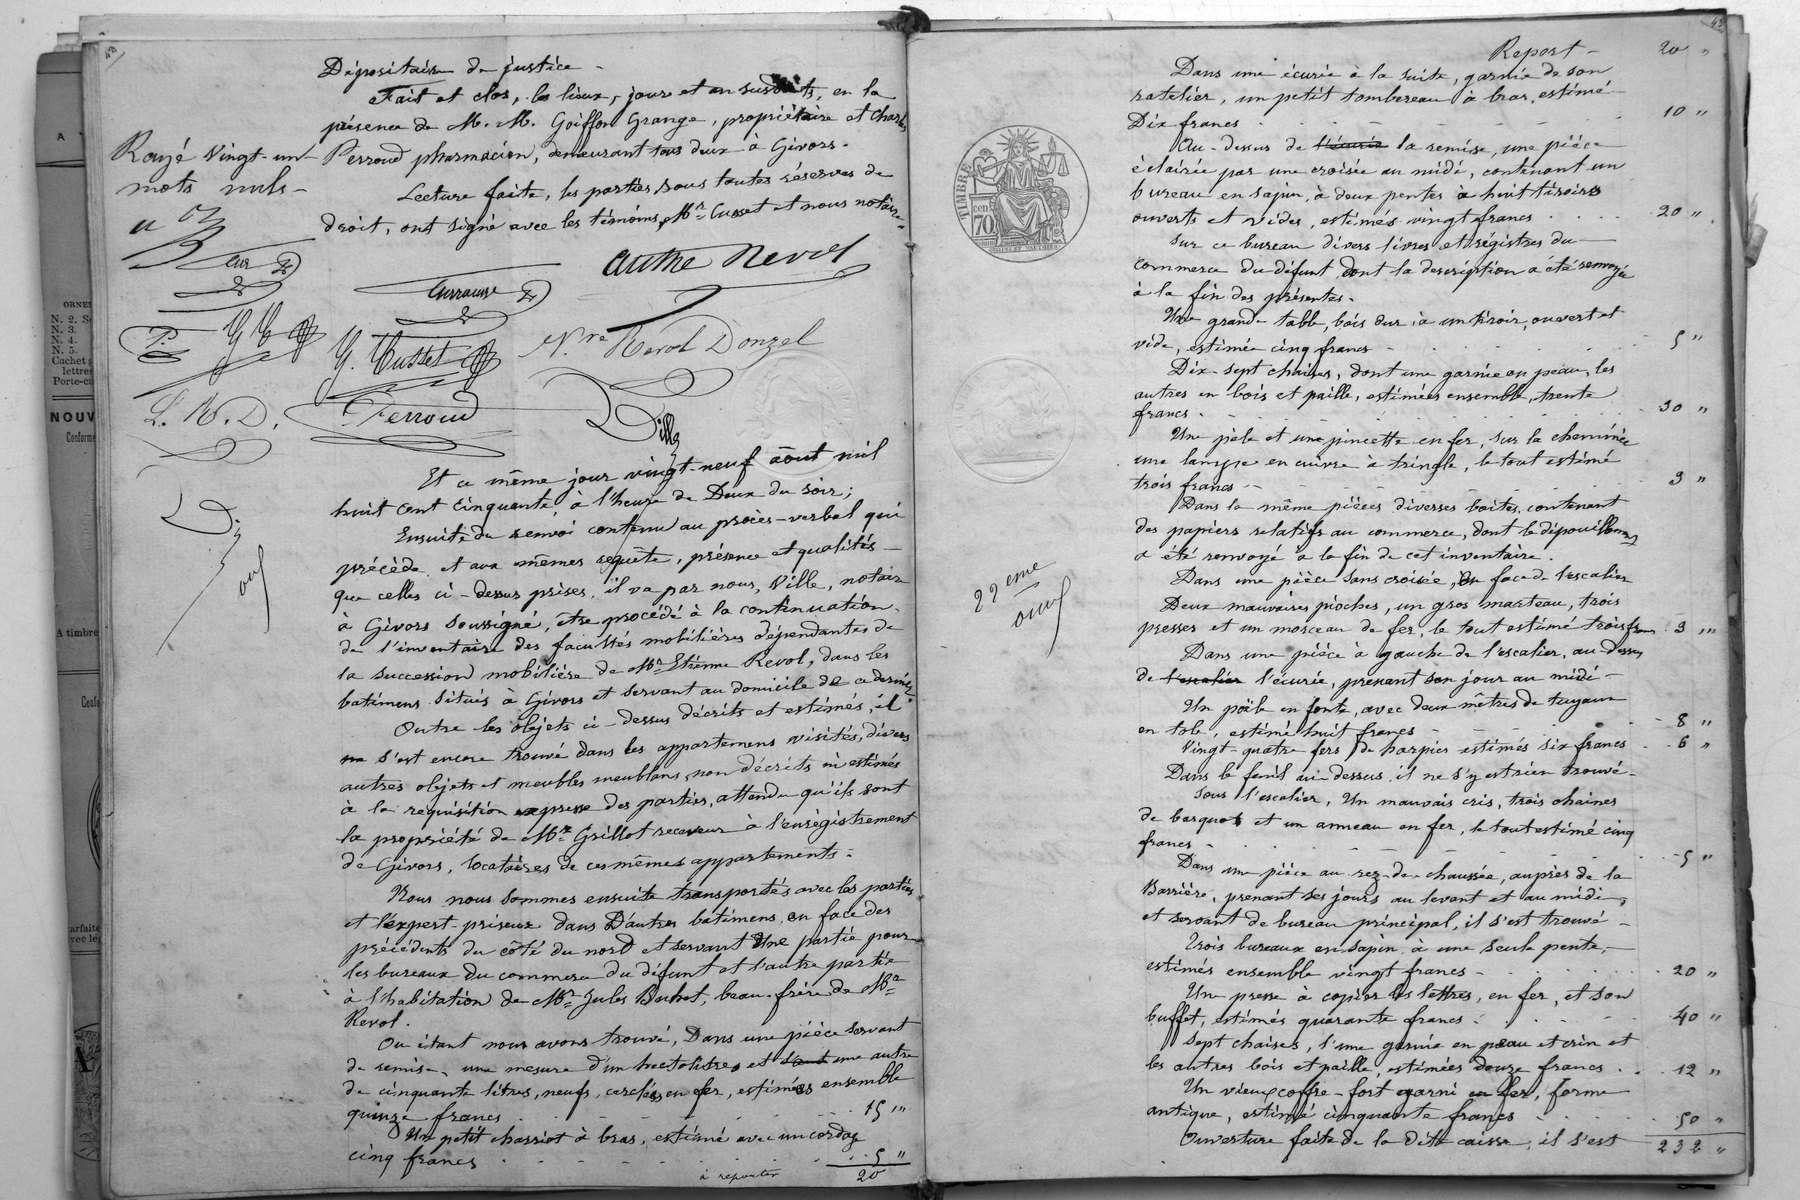 Dépositaire de justice -
Fait et clos, les lieux, jours et an susdits, en la
présence de M. M. Goiffon Grange, propriétaire et Charles
Perroud pharmacien, demeurant tous deux à Givors.
Lecture faite, les parties, sous toutes réserves de
droit, ont signé avec les témoins, Mr Cusset et nous notaire.
Rayé vingt-un
mots nuls -
autre Revol
G. Cusset
Nre Revol Donzel
L. R. D.
Perroud
Et ce même jour vingt-neuf août mil
huit cent cinquante, à l'heure de Deux du soir;
Ensuite du renvoi contenu au procès-verbal qui
précède et aux mêmes requête, présence et qualités -
que celles ci-dessus prises, il va par nous, Ville, notaire
à Givors soussigné, être procédé à la continuation -
de l'inventaire des facultés mobilières dépendantes de
la succession mobilière de Mr Etienne Revol, dans les
batimens situés à Givors et servant au domicile de ce dernier.
Outre les objets ci-dessus décrits et estimés, il
ne s'est encore trouvé dans les appartemens visités, divers
autres objets et meubles meublans, non décrits ni estimés
à la requisition expresse des parties, attendu qu'ils sont
la propriété de Mr Grillot receveur à l'enrégistrement
de Givors, locataires de ces mêmes appartements -
Nous nous sommes ensuite transportés avec les parties
et l'expert-priseur dans D'autres batimens, en face des
précédents du côté du nord et servant Une partie pour
les bureaux du commerce du défunt et l'autre partie
à l'habitation de Mr Jules Buhet, beau-frère de Mr
Revol.
Ou étant nous avons trouvé, Dans une pièce servant
de remise, une mesure d'un hectolitre, et une autre
de cinquante litres, neufs, cerclés en fer, estimées ensemble
quinze francs . . . 15 "
Un petit charriot à bras, estimé avec un cordag
cinq francs . . . 5 "
à reporter 20
49
Report - 20 "
Dans une écurie à la suite, garnie de son
ratelier, un petit tombereau à bras, estimé
Dix francs . . . 10 "
Au-dessus de l'écurie la remise, une pièce
éclairée par une croisée au midi, contenant un
bureau en sapin, à deux pentes à huit tiroirs
ouverts et vides, estimés vingt francs . . . 20 "
Sur ce bureau divers livres et régistres du -
commerce du défunt dont la description a été renvoyée
à la fin des présentes -
Une grande table, bois dur à un tiroir, ouvert et
vide, estimée cinq francs . . . 5 "
Dix-sept chaises, dont une garnie en peau, les
autres en bois et paille, estimées ensemble, trente
francs . . . 30 "
Une pèle et une pincette en fer, sur la cheminée
une lampe en cuivre à tringle, le tout estimé
trois francs . . . 3 "
Dans la même pièce diverses boites contenant
des papiers relatifs au commerce, dont le dépouillement
a été renvoyé à la fin de cet inventaire.
Dans une pièce sans croisée, en face de l'escalier
Deux mauvaises pioches, un gros marteau, trois
presses et un morceau de fer, le tout estimé trois francs . 3 "
Dans une pièce à gauche de l'escalier, au-dessus
de l'escalier l'écurie, prenant son jour au midi -
Un poële en fonte, avec deux mêtres de tuyaux
en tole, estimé huit francs . . . 8 "
Vingt-quatre fers de harpies estimés six francs . 6 "
Dans le fenil au-dessus, il ne s'y est rien trouvé -
Sous l'escalier, Un mauvais cris, trois chaines
de barquot et un anneau en fer, le tout estimé cinq
francs . . . 5 "
Dans une pièce au rez-de-chaussée, auprès de la
Barrière, prenant ses jours au levant et au midi,
et servant de bureau principal, il s'est trouvé -
Trois bureaux en sapin à une seule pente, -
estimés ensemble vingt francs . . . 20 "
Une presse à copier les lettres, en fer, et son
buffet, estimés quarante francs . . . 40 "
Sept chaises, l'une garnie en peau et crin et
les autres bois et paille, estimées douze francs . . 12 "
Un vieux coffre-fort garni en fer, forme
antique, estimé cinquante francs . . . 50 "
Ouverture faite de la Dite caisse, il s'est 232 "
22eme
TIMBRE
70
ORNE
N. 2. S
N. 3.
N. 4.
N. 5.
Cachet
lettre
Porte-cu
NOUV
Conforme
A timbre
Confo
arfaite
vec lé